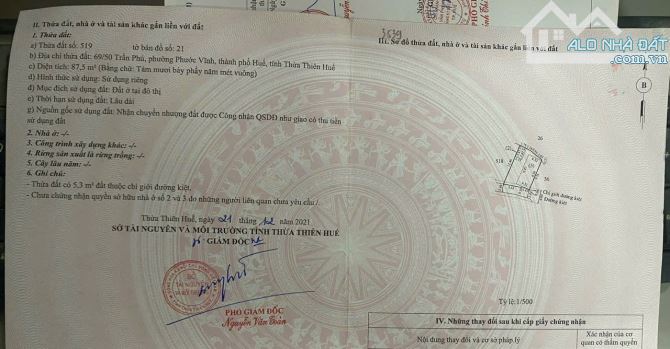 II. Thửa đất, nhà ở và tài sản khác gắn liền với đất
1. Thửa đất:
a) Thửa đất số: 519 tờ bản đồ số: 21
b) Địa chỉ thửa đất: 69/50 Trần Phú, phường Phước Vĩnh, thành phố Huế, tỉnh Thừa Thiên Huế
c) Diện tích: 87,5 m² (Bằng chữ: Tám mươi bảy phẩy năm mét vuông)
d) Hình thức sử dụng: Sử dụng riêng
đ) Mục đích sử dụng: Đất ở tại đô thị
e) Thời hạn sử dụng đất: Lâu dài
g) Nguồn gốc sử dụng đất: Nhận chuyển nhượng đất được Công nhận QSDĐ như giao có thu tiền
sử dụng đất
2. Nhà ở: -/-
3. Công trình xây dựng khác: -/-
4. Rừng sản xuất là rừng trồng: -/-
5. Cây lâu năm: -/-
6. Ghi chú:
- Thửa đất có 5,3 m² đất thuộc chỉ giới đường kiệt.
- Chưa chứng nhận quyền sở hữu nhà ở số 2 và 3 do những người liên quan chưa yêu cầu./.
Thừa Thiên Huế, ngày 21 tháng 12 năm 2021
SỞ TÀI NGUYÊN VÀ MÔI TRƯỜNG TỈNH THỪA THIÊN HUẾ
GIÁM ĐỐC
PHÓ GIÁM ĐỐC
Nguyễn Văn Đoàn
III. Sơ đồ thửa đất, nhà ở và tài sản khác gắn liền với đất
ALO NHÀ ĐẤT
B
26
518
56
Chỉ giới đường kiệt
Đường kiệt
Tỷ lệ 1/500
IV. Những thay đổi sau khi cấp giấy chứng nhận
Nội dung thay đổi và cơ sở pháp lý
Xác nhận của cơ
quan có thẩm quyền